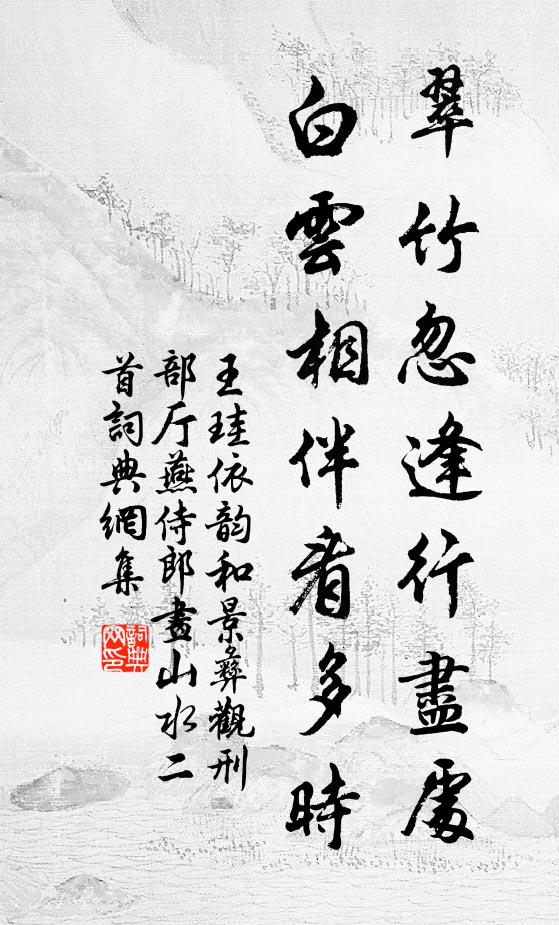 翠竹忽逢行盡處
白雲相伴看多時
王珪依韵和景彝觀刑
部厅燕侍郎畫山水二
首詞典網集
詞典
网印